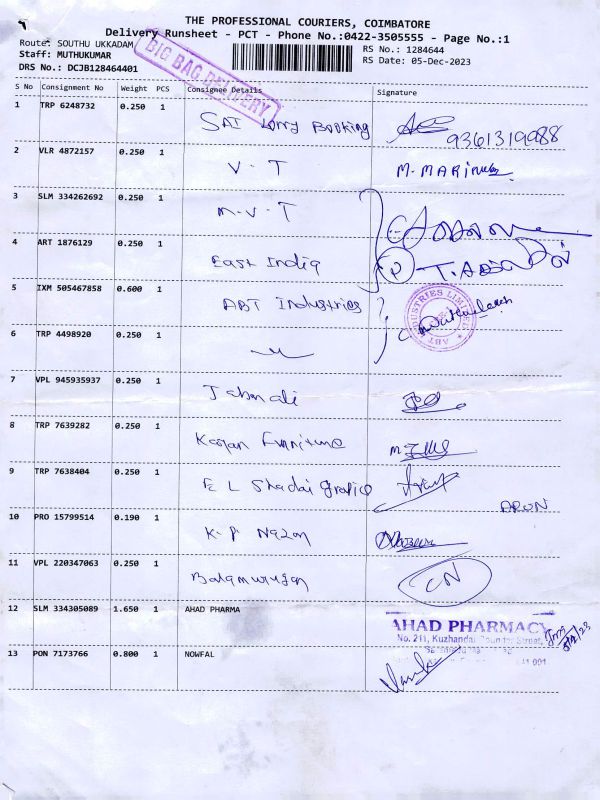 THE PROFESSIONAL COURIERS, COIMBATORE
Delivery Runsheet - PCT - Phone No.:0422-3505555 - Page No.:1
Route: SOUTHU UKKADAM
Staff: MUTHUKUMAR
DRS No.: DCJB128464401
BIG BAG DELIVERY
RS No.: 1284644
RS Date: 05-Dec-2023
S No Consignment No Weight PCS Consignee Details Signature
1 TRP 6248732 0.250 1 SAI Lorry Booking 9361319988
2 VLR 4872157 0.250 1 V. T M. MARI
3 SLM 334262692 0.250 1 M. V. T
4 ART 1876129 0.250 1 East India
5 IXM 505467858 0.600 1 ABT Industries
ABT INDUSTRIES LIMITED
6 TRP 4498920 0.250 1
7 VPL 945935937 0.250 1
8 TRP 7639282 0.250 1 Furniture
9 TRP 7638404 0.250 1 E L Shadai
ARUN
10 PRO 15799514 0.190 1 K. P
11 VPL 220347063 0.250 1 Balamurugan CN
12 SLM 334305089 1.650 1 AHAD PHARMA
AHAD PHARMACY
No. 211, Kuzhandai Street,
641 001
13 PON 7173766 0.800 1 NOWFAL